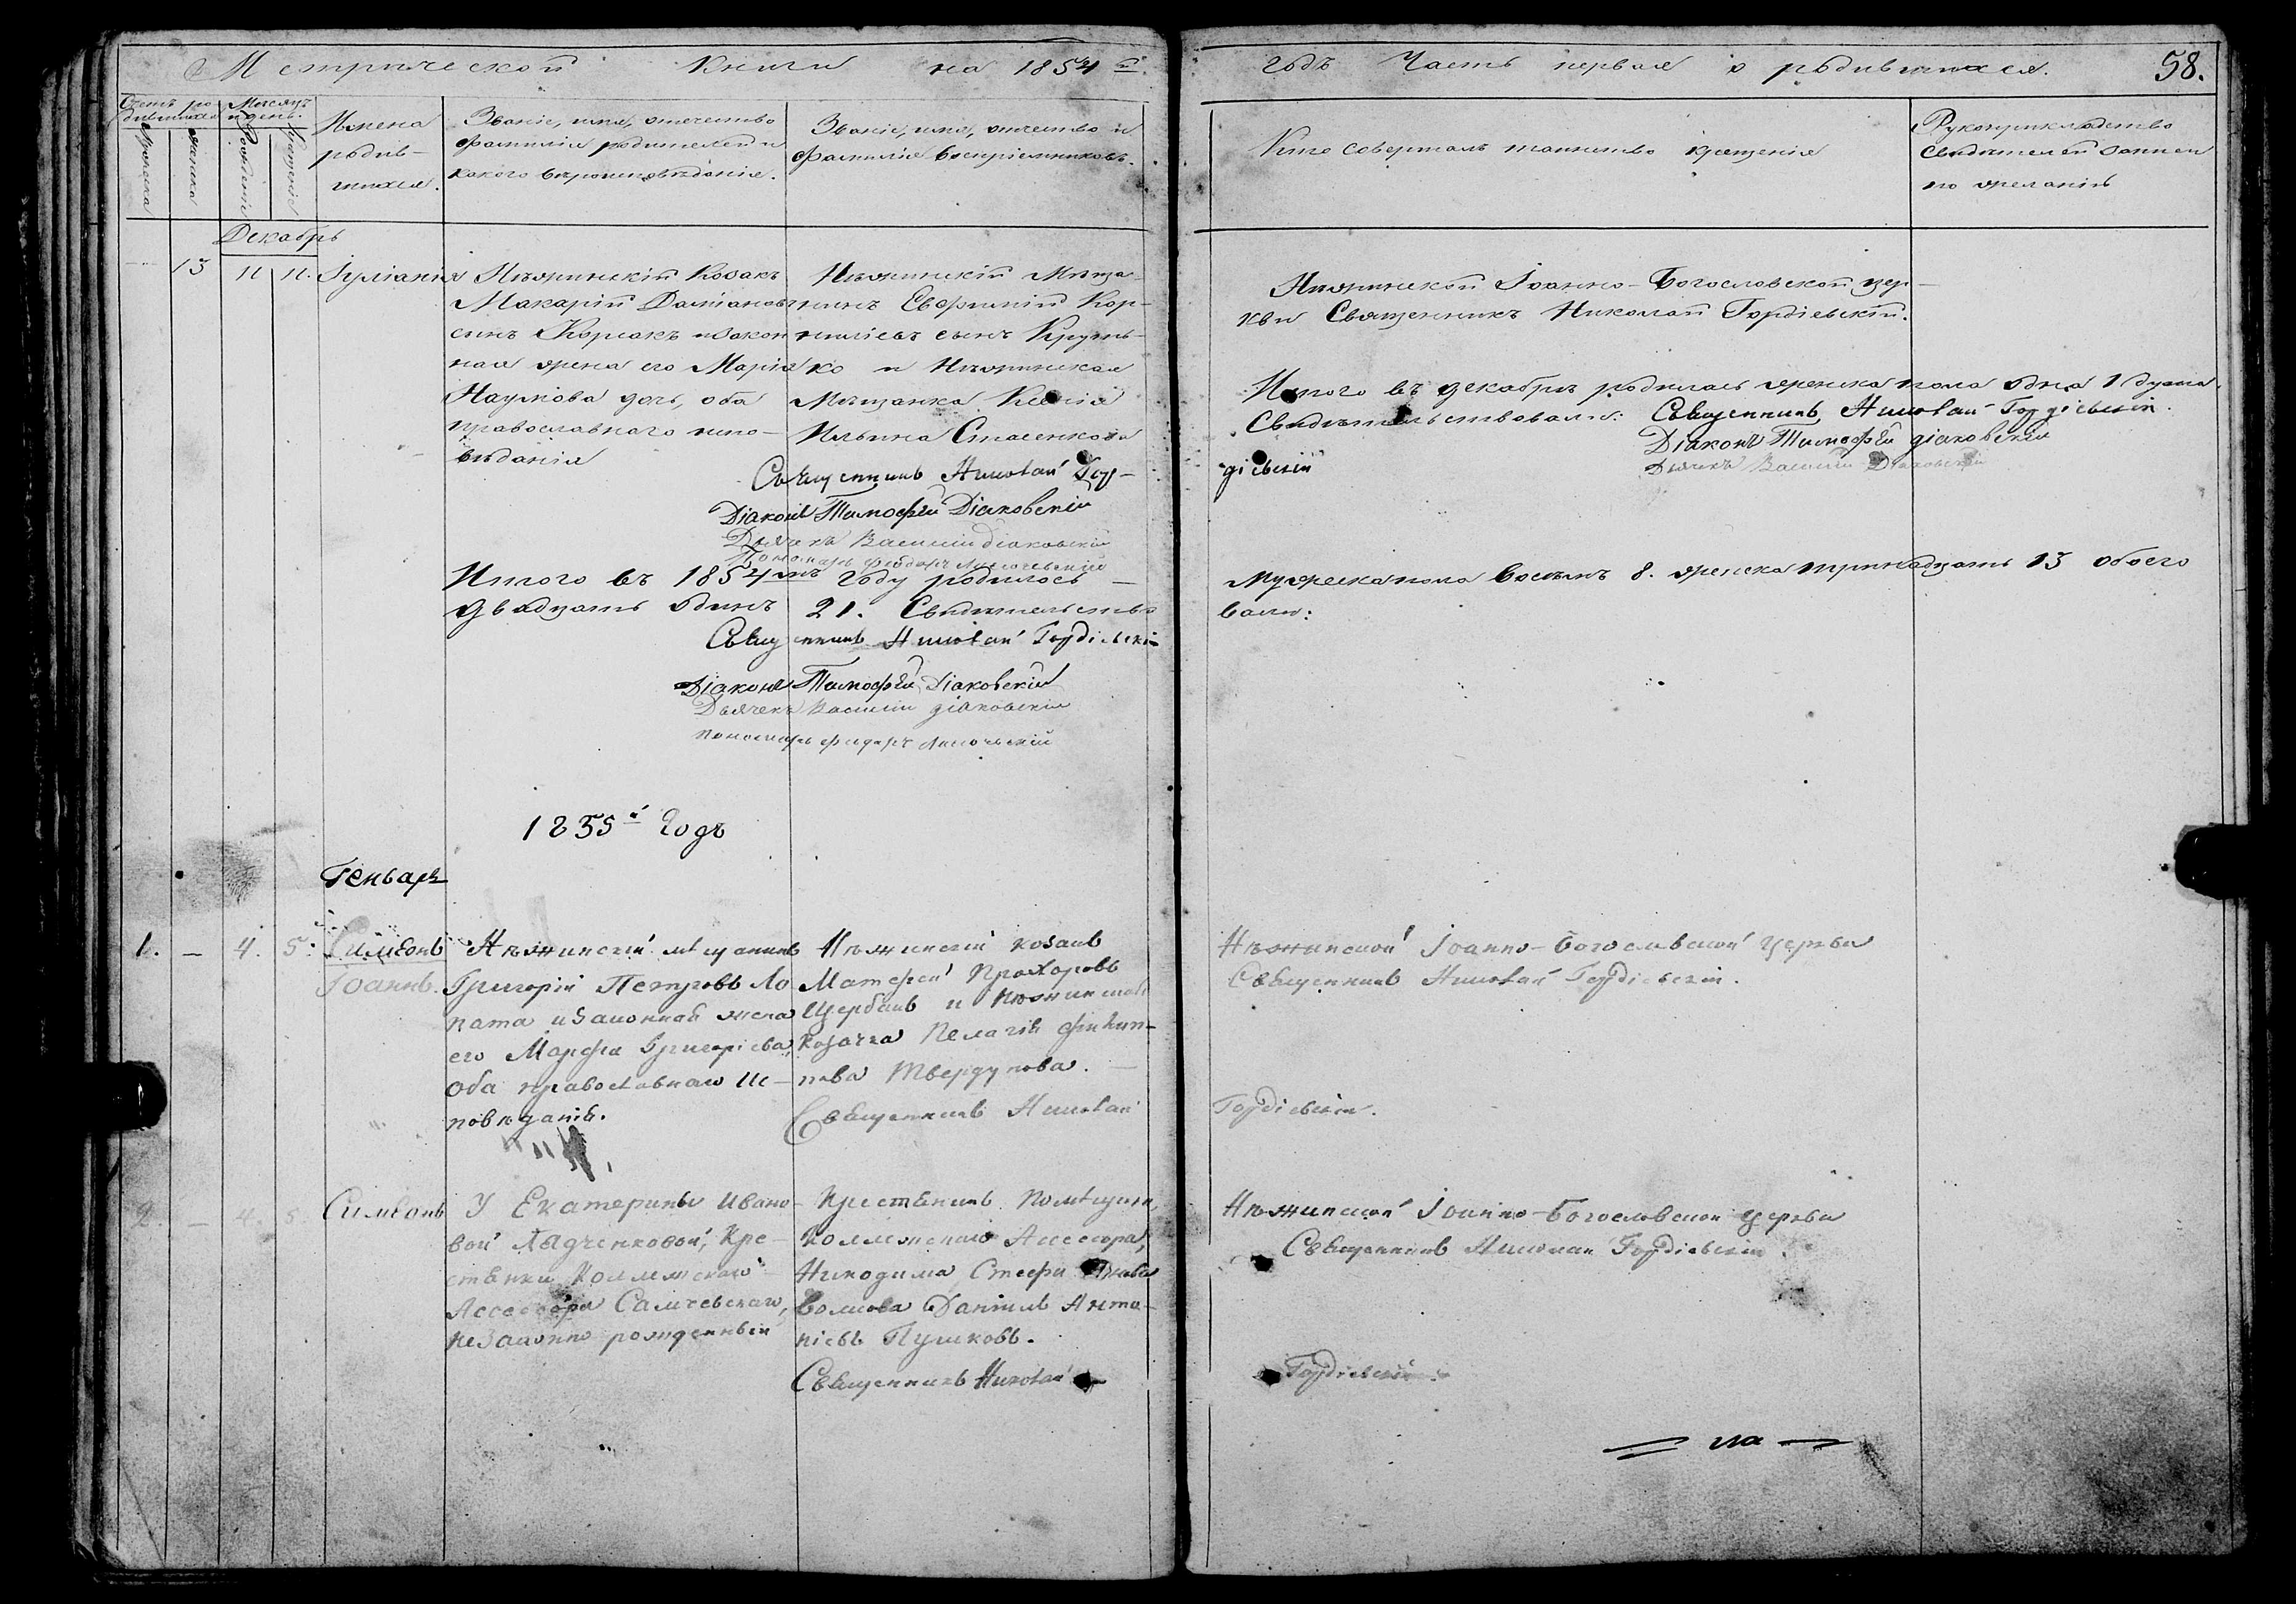 Метрической Книги на 1854й
годъ Часть первая о родившихся. 58.
Счетъ родившихся
Мужеска
Женска
Месяцъ и день.
Рожденія
Крещенія
Имена
родив-
шихся.
Званіе, имя, отчество
фамилія родителей и
какого вѣроисповѣданія.
Званіе, имя, отчество и
фамилія воспріемниковъ.
Кто совершалъ таинство крещенія
Рукоприкладство
свидѣтелей записи
по желанію
Декабрь
— 13 11 11. Іуліанія
Нѣжинскій Козакъ
Макарій Даміановъ
сынъ Корсакъ и закон
ная жена его Марія
Наумова дочь, оба
православнаго испо-
вѣданія
Нѣжинскій Мѣща-
нинъ Евфимій Кор-
ниліевъ сынъ Круть-
ко и Нѣжинская
Мѣщанка Ксенія
Ильина Стасенкова
Нѣжинской Іоанно-Богословской цер-
кви Священникъ Николай Гордіевскій.
Итого въ декабрѣ родилась женска пола одна 1 душа.
Свидѣтельствовали: Священникъ Николай Гордіевскій.
Діаконъ Тимофѣй Діаковскій
Дьячекъ Василій Діаковскій
Священникъ Николай Гор-
діевскій
Діаконъ Тимофѣй Діаковскій
Дьячекъ Василій Діаковскій
Пономарь Феодоръ
Итого въ 1854мъ году родилось —
Мужеска пола восемь 8. женска тринадцать 13 обоего
двадцать одинъ 21. Свидѣтельство
вали:
Священникъ Николай Гордіевскій
Діаконъ Тимофѣй Діаковскій
Дьячекъ Василій Діаковскій
Пономарь Фидоръ
1855й Годъ
Генварь
1. — 4. 5. Симеонъ
Іоаннъ.
Нѣжинскій мѣщанинъ
Григорій Петровъ Ло
пата и законная жена
его Марфа Григоріева,
оба православнаго Ис-
повѣданія.
Нѣжинскій козакъ
Матфей Прохоровъ
Щербакъ и Нѣжинская
Козачка Пелагія Филип-
пова Твердупова.
Священникъ Николай
Нѣжинской Іоанно-Богословской Церкви
Священникъ Николай Гордіевскій.
Гордіевскій.
2. — 4. 5. Симеонъ
У Екатерины Ивано-
вой Лядченковой, Кре-
стьянки Коллежскаго
Ассесора Самчевскаго,
незаконно рожденный
Крестьянинъ Помѣщика,
Коллежскаго Ассесора,
Никодима
Волкова Даніилъ Анто-
ніевъ Пушковъ.
Священникъ Николай
Нѣжинской Іоанно-Богословской Церкви
Священникъ Николай Гордіевскій.
Гордіевскій.
на